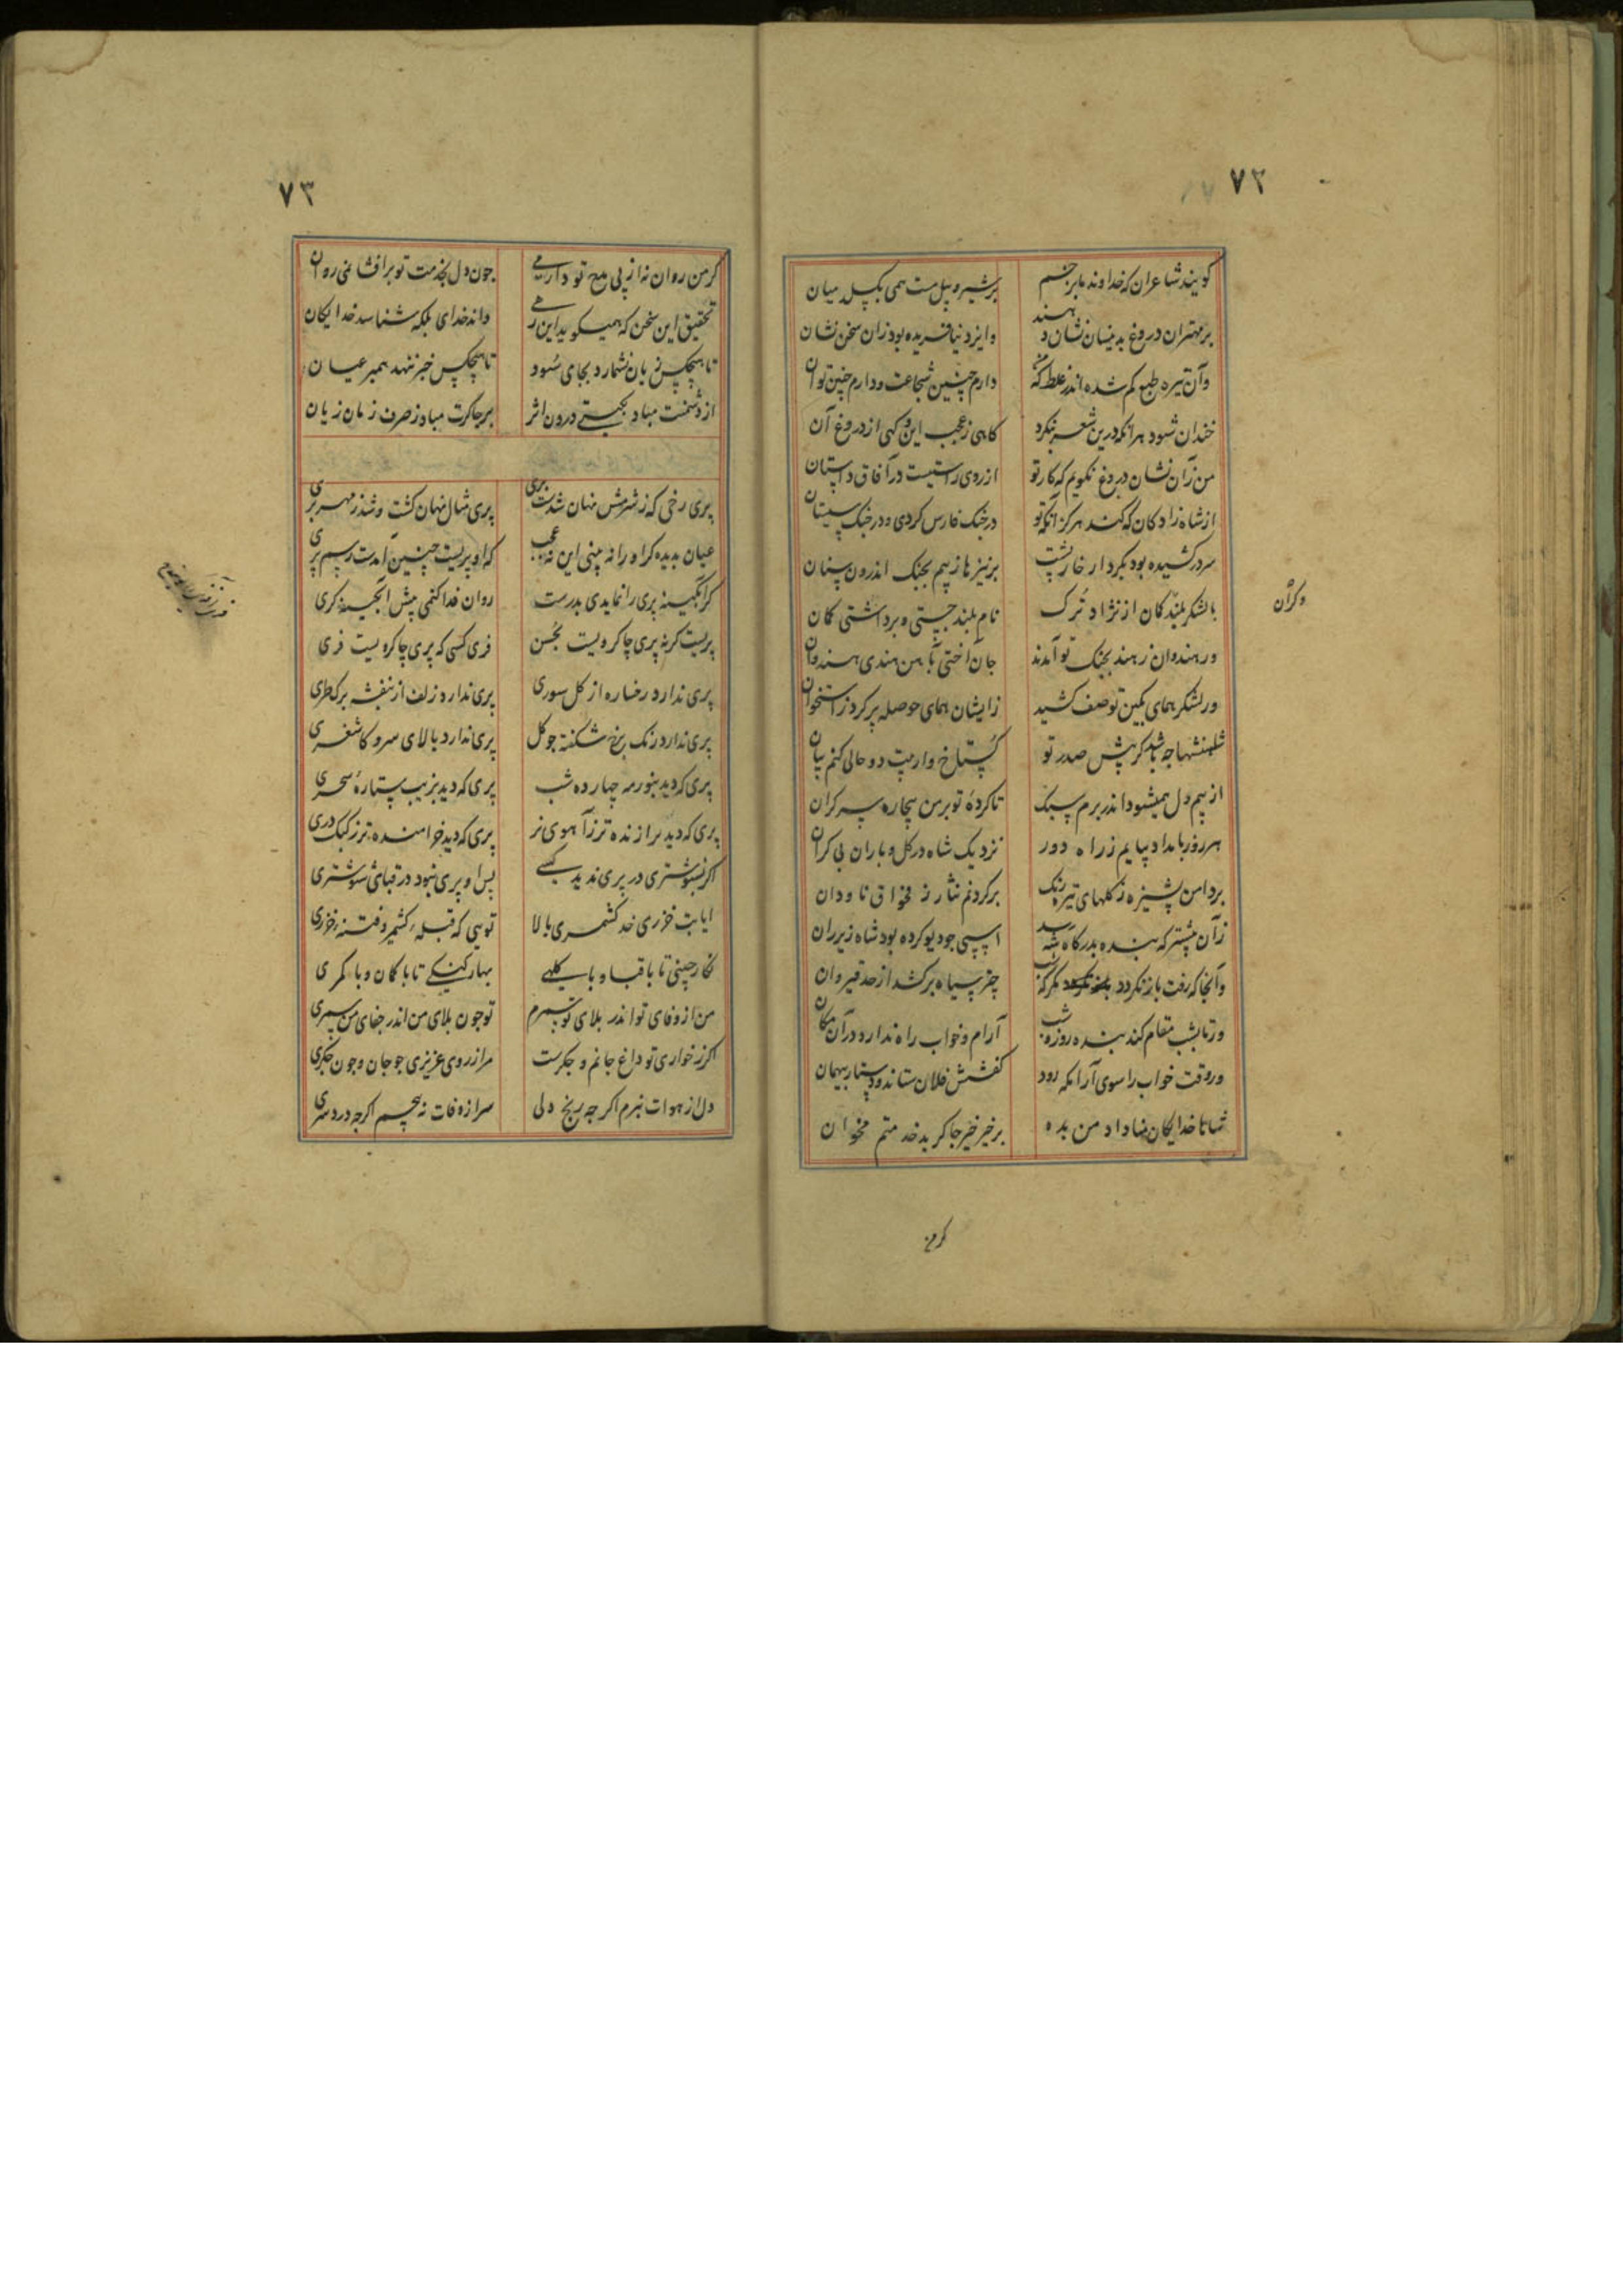 ۷۲
کویند شاعران که خداوند ما بزخم	بر شیر و پیل مست همی بکسلد میان
بر مهتران دروغ بدینسان نشان دهند	وایزد نیافریده بود زان سخن نشان
وآن تیره طبع کم شده اندر غلط که من	دارم چنین شجاعت و دارم چنین توان
خندان شود هرآنکه درین شعر بنکرد	کاهی ز عجب این و کهی از دروغ آن
من زان نشان دروغ نکویم که کار تو	از روی راستیست در آفاق داستان
از شاه زادکان که کند هرکز آنکه تو	در جنک فارس کردی و در جنک سیستان
سر درکشیده بود بکردار خارپشت	بر نیزها ز بیم بجنک اندرون سنان
با لشکر بلندکان از نژاد ترک	نام بلند جستی و برداشتی کان
وکران
ور هندوان ز هند بجنک تو آمدند	جان آختی بآهن هندی ز هندوان
ور لشکر همای بکین تو صف کشید	زایشان همای حوصله پر کرد ز استخوان
شاهنشها چه باشد کر پیش صدر تو	کستاخ وار بیت دو حالی کنم بیان
از بیم دل همیشود اندر برم سبک	تا کردهٔ تو بر من بیچاره سر کران
هر روز بامداد بیایم ز راه دور	نزدیک شاه در کل و باران بی کران
بر دامن پشیزه ز کلهای تیره رنک	بر کردنم نثار ز مخراق ناودان
زآن پیشتر که بنده بدرکاه شه رسد	اسپی چو دیو کرده بود شاه زیر ران
وآنجا که رفت باز نکردد مکر که شب	چتر سیاه برکشد از حد قیروان
ور تا بشب مقام کند بنده روز و شب	آرام و خواب راه ندارد در آن مکان
ور وقت خواب را سوی آرامکه رود	کفشش فلان ستاند و دستار بهمان
شاها تا خدایکان بضیا داد من بده	برخیز خیز چاکر بد خدمتم مخوان
کرمن
۷۳
کر من روان نه از پی مدح تو دارمی	چون دل بخدمت تو برافشانمی روان
تحقیق این سخن که همیکوید این رهی	داند خدای بلکه شناسد خدایکان
تا هیچکس زیان نشمارد بجای سود	تا هیچکس خبر ننهد همبر عیان
از دشمنت مباد بکیتی درون اثر	بر چاکرت مباد ز صرف زمان زیان
پری رخی که ز شرمش نهان شدست پری	پری مثال نهان کشت و شد ز مهر بری
عیان بدیده کر او را نه بینی این نه عجب	که او پریست چنین آمدست رسم پری
کر آبکینه پری را نمایدی بدرست	روان فدا کنمی پیش آبکینه کری
پریست کر نه پری چاکر ویست بحسن	فری کسی که پری چاکر ویست فری
پری ندارد رخساره از کل سوری	پری ندارد زلف از بنفشه برک طری
پری ندارد رنک برخ شکفته چو کل	پری ندارد بالای سرو کاشغری
پری که دید بنور مه چهارده شب	پری که دید بزیب ستارهٔ سحری
پری که دید برازنده تر ز آهوی نر	پری که دید خرامنده تر ز کبک دری
اکر بشوشتری در پری ندید کسی	پس او پری نبود در قبای شوشتری
ایا بت خزری خد کشمری بالا	تویی که قبلهٔ کشمیر و فتنهٔ خزری
نکار چینی تا با قبا و با کلهی	بهار کنکی تا با کمان و با کمری
من از وفای تو اندر بلای تو سپرم	تو چون بلای من اندر جفای من سپری
اکر ز خواری تو داغ جانم و جکرست	مرا ز روی عزیزی چو جان و چون جکری
دل از هوات نبرم اکر چه رنج دلی	سر از وفات نپیچم اکر چه درد سری